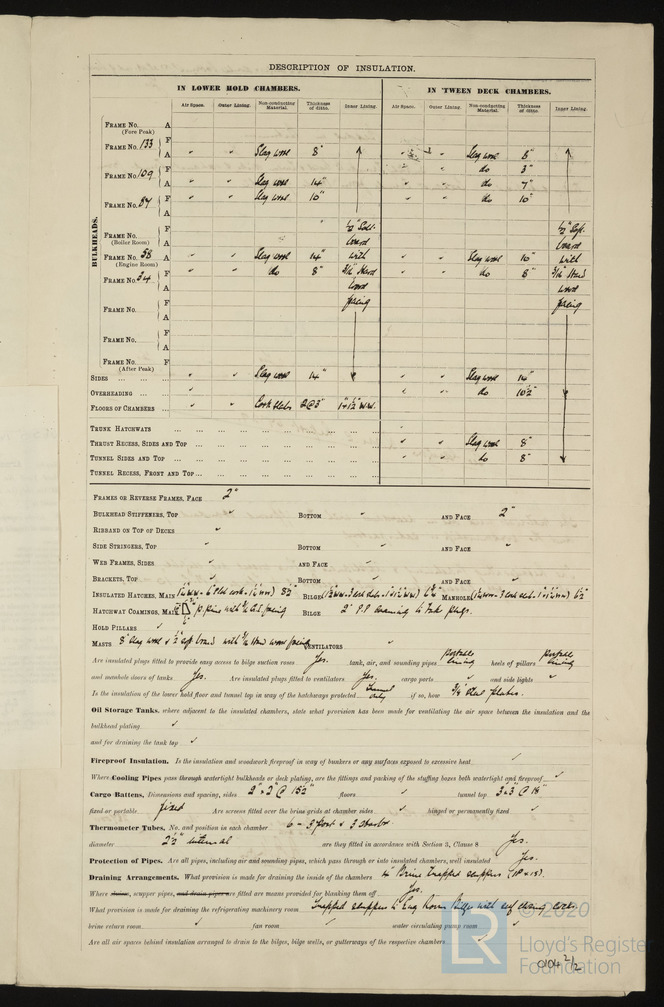 DESCRIPTION OF INSULATION.
IN LOWER HOLD CHAMBERS. IN 'TWEEN DECK CHAMBERS.
Air Space. Outer Lining. Non-conducting Material. Thickness of ditto. Inner Lining. Air Space. Outer Lining. Non-conducting Material. Thickness of ditto. Inner Lining.
BULKHEADS.
FRAME NO. A
(Fore Peak)
FRAME NO. 133 F
A Slag wool 8" Slag wool 8"
FRAME NO. 109 F do 3"
A Slag wool 14" do 7"
FRAME NO. 87 F Slag wool 10" do 10"
A
FRAME NO. F ½" Soft ½" Soft
(Boiler Room) A board board
FRAME NO. 58 F Slag wool 14" with Slag wool 10" with
(Engine Room) A do 8" 3/16" Hard do 8" 3/16" Hard
FRAME NO. 34 F wood wood
A facing facing
FRAME NO. F
A
FRAME NO. F
A
FRAME NO. F
(After Peak)
SIDES Slag wool 14" Slag wool 14"
OVERHEADING do 10½"
FLOORS OF CHAMBERS Cork Slabs 2@3"
TRUNK HATCHWAYS
THRUST RECESS, SIDES AND TOP Slag wool 8"
TUNNEL SIDES AND TOP do 8"
TUNNEL RECESS, FRONT AND TOP
FRAMES OR REVERSE FRAMES, FACE 2"
BULKHEAD STIFFENERS, TOP BOTTOM AND FACE 2"
RIBBAND ON TOP OF DECKS
SIDE STRINGERS, TOP BOTTOM AND FACE
WEB FRAMES, SIDES AND FACE
BRACKETS, TOP BOTTOM AND FACE
INSULATED HATCHES, MAIN 8½" BILGE MANHOLE
HATCHWAY COAMINGS, MAIN BILGE 2" P.P. coaming to take plugs.
HOLD PILLARS
MASTS 8" Slag wool & ½" soft board with 3/16" Hard wood facing VENTILATORS
Are insulated plugs fitted to provide easy access to bilge suction roses Yes. tank, air, and sounding pipes portable lining heels of pillars portable lining
and manhole doors of tanks Yes. Are insulated plugs fitted to ventilators Yes. cargo ports and side lights
Is the insulation of the lower hold floor and tunnel top in way of the hatchways protected Tunnel only if so, how 3/16 Steel plates.
Oil Storage Tanks. where adjacent to the insulated chambers, state what provision has been made for ventilating the air space between the insulation and the
bulkhead plating
and for draining the tank top
Fireproof Insulation. Is the insulation and woodwork fireproof in way of bunkers or any surfaces exposed to excessive heat
Where Cooling Pipes pass through watertight bulkheads or deck plating, are the fittings and packing of the stuffing boxes both watertight and fireproof
Cargo Battens, Dimensions and spacing, sides 2" × 2" @ 15½" floors tunnel top 3"×3" @ 18"
fixed or portable fixed Are screens fitted over the brine grids at chamber sides hinged or permanently fixed
Thermometer Tubes, No. and position in each chamber 6 – 3 port & 3 starbd.
diameter 2½" internal are they fitted in accordance with Section 3, Clause 8 Yes.
Protection of Pipes. Are all pipes, including air and sounding pipes, which pass through or into insulated chambers, well insulated Yes.
Draining Arrangements. What provision is made for draining the inside of the chambers 4" Brine trapped scuppers (1P & 1S).
Where drains, scupper pipes, and drain pipes are fitted are means provided for blanking them off Yes.
What provision is made for draining the refrigerating machinery room Trapped scuppers to Eng. Room Bilges with self closing cocks.
brine return room fan room water circulating pump room
Are all air spaces behind insulation arranged to drain to the bilges, bilge wells, or gutterways of the respective chambers
© 2020
LR
Lloyd's Register
Foundation
0104 2/2